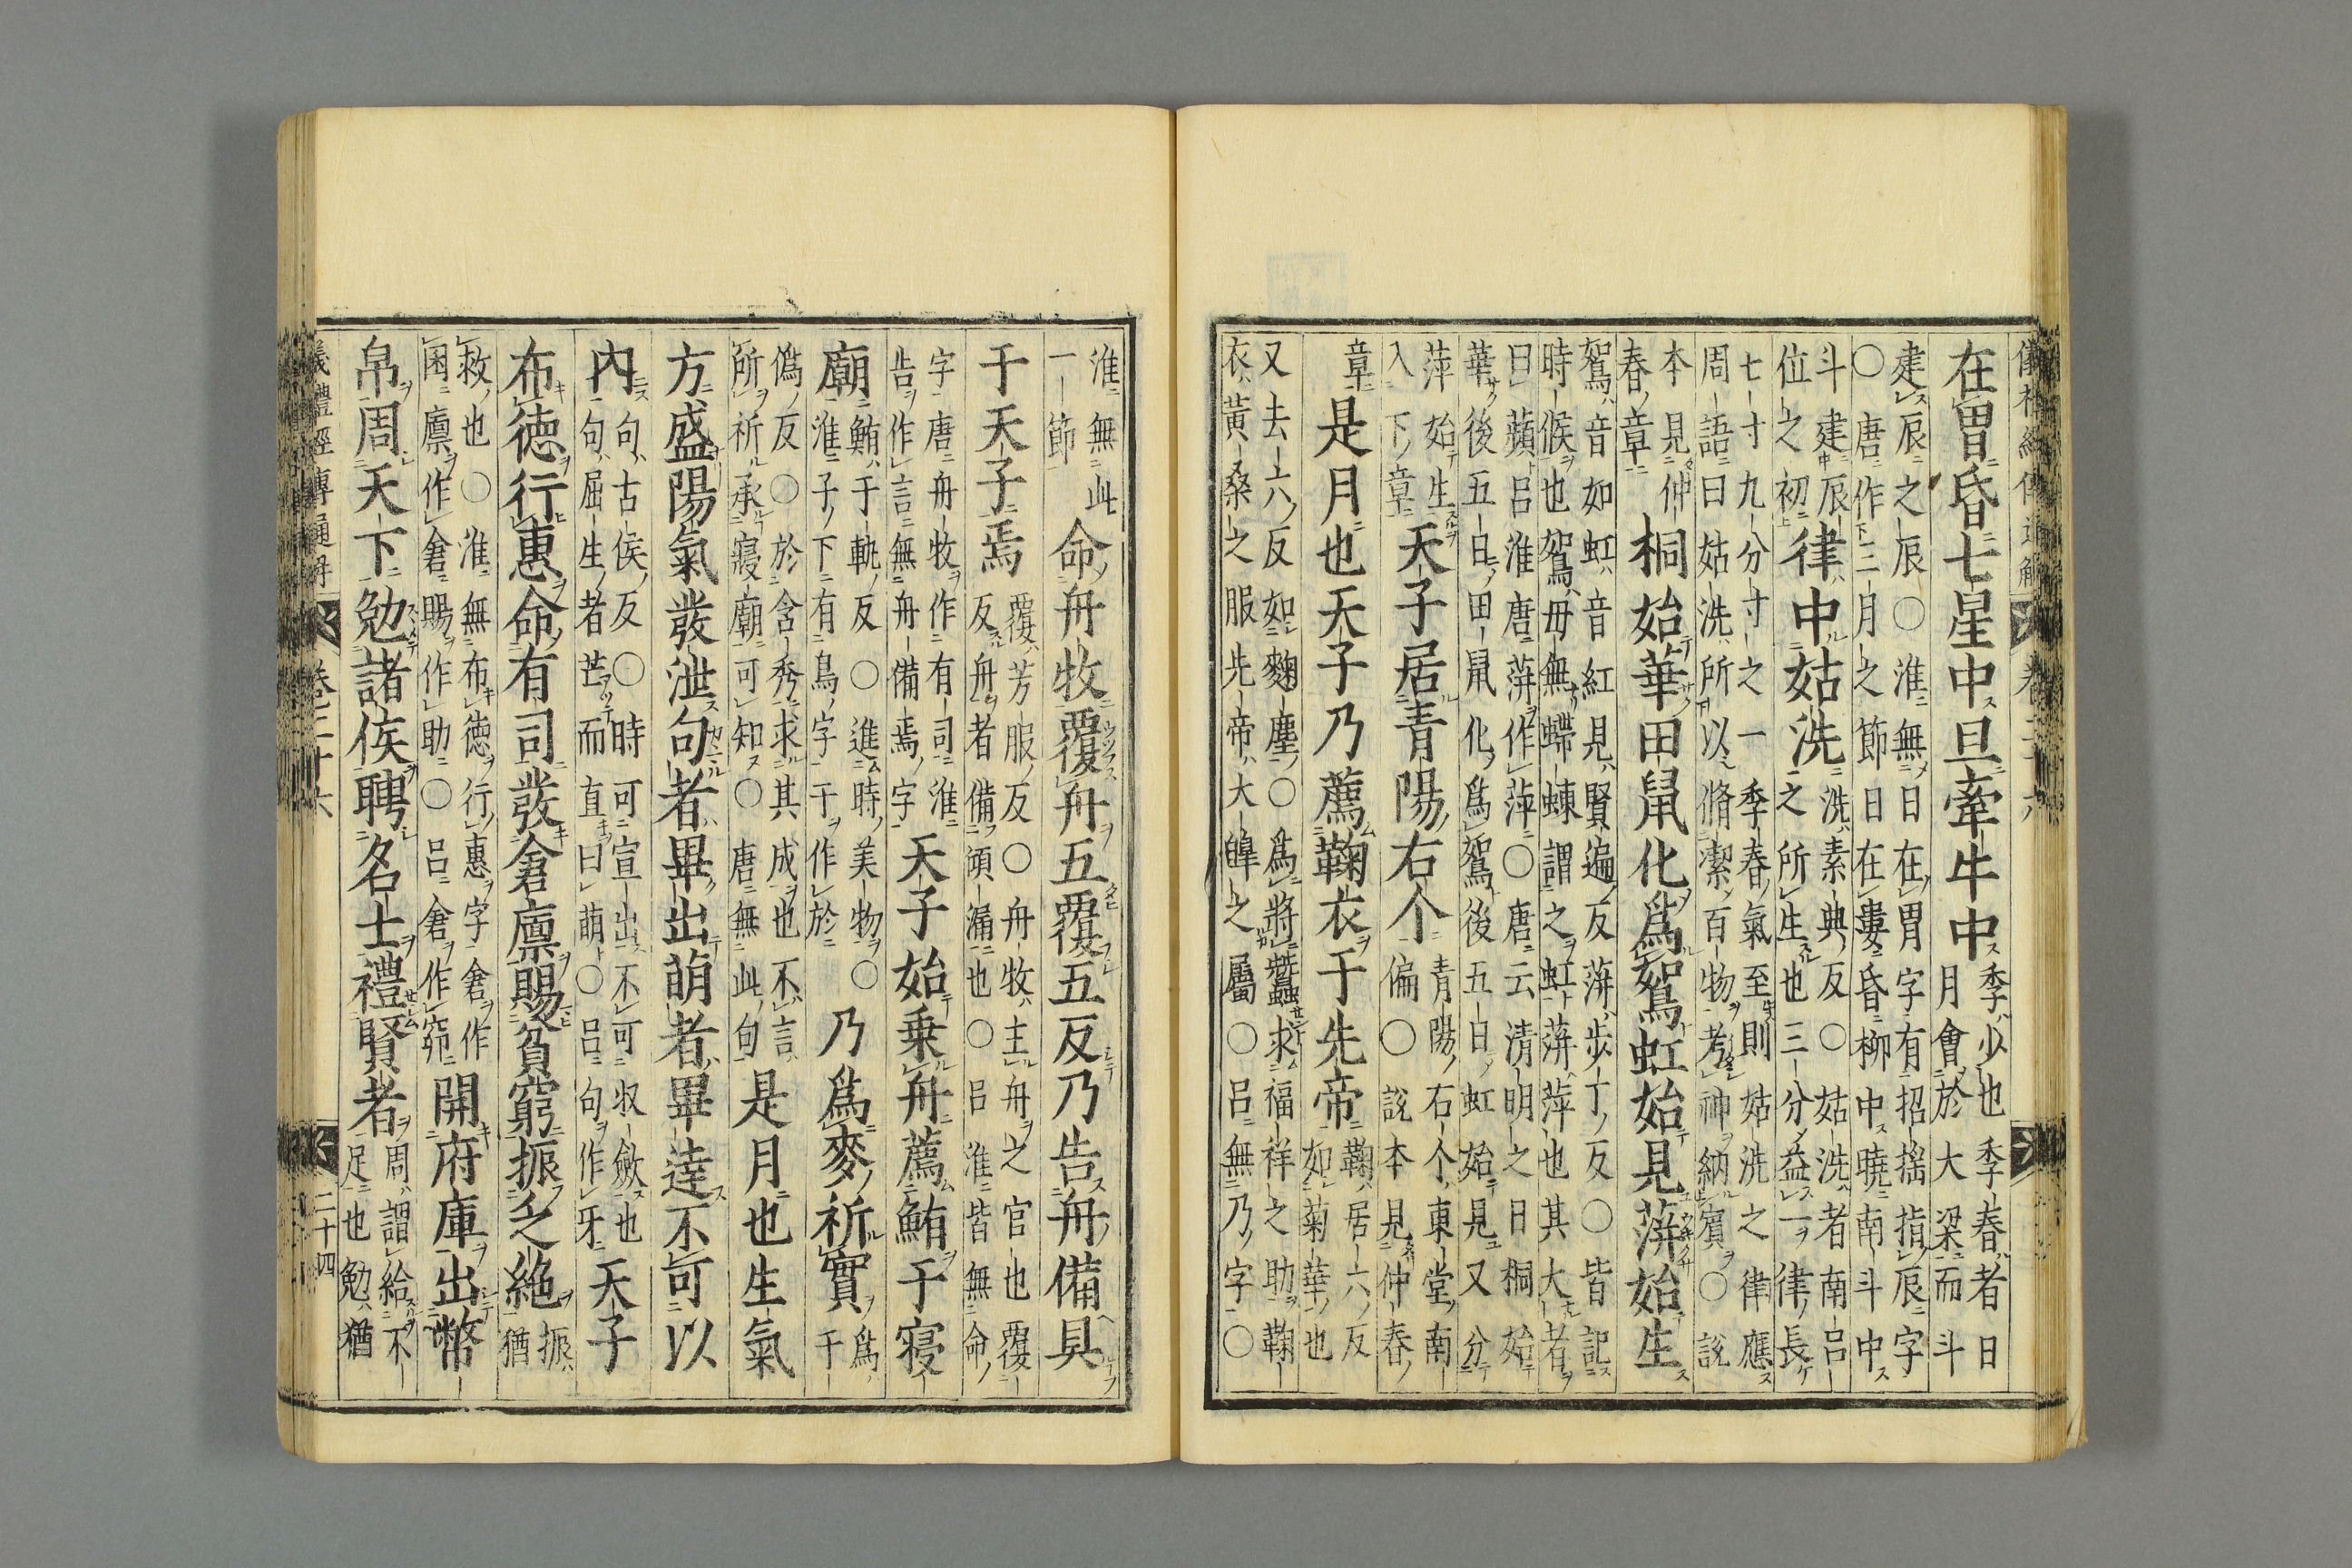 儀禮經傳通解 卷二十六
在胃昏七星中旦牽牛中
季少也季春者日
月會於大梁而斗
建辰之辰〇淮無日在胃字有招揺指辰字
〇唐作二月之節日在婁昏柳中曉南斗中
斗建辰
位之初
律中姑洗
洗素典反〇姑洗者南呂
之所生也三分益一律長
七寸九分寸之一季春氣至則姑洗之律應
周語曰姑洗所以脩潔百物考神納賓〇說
本見仲
春章
桐始華田鼠化爲鴽虹始見蓱始生
鴽音如虹音紅見賢遍反蓱步丁反〇皆記
時候也鴽毋無蝭蝀謂之虹蓱萍也其大者
曰蘋呂淮唐蓱作萍〇唐云清明之日桐始
華後五日田鼠化爲鴽後五日虹始見又分
萍始生
入下章
天子居青陽右个
青陽右个東堂南
偏〇說本見仲春
章
是月也天子乃薦鞠衣于先帝
鞠居六反
如菊華也
又去六反如麴塵〇爲將蠶求福祥之助鞠
衣黃桑之服先帝大皥之屬〇呂無乃字〇
淮無此
一節
命舟牧覆舟五覆五反乃告舟備具
于天子焉
覆芳服反〇舟牧主舟之官也覆
反舟者備傾漏也〇呂淮皆無命
字唐舟牧作有司淮
告作言無舟備焉字
天子始乘舟薦鮪于寢
廟
鮪于軌反〇進時美物〇
淮子下有烏字于作於
乃爲麥祈實
爲于
僞反〇於含秀求其成也不言
所祈承寢廟可知〇唐無此句
是月也生氣
方盛陽氣發泄句者畢出萌者畢達不可以
內
句古侯反〇時可宣出不可収斂也
句屈生者芒而直曰萌〇呂句作牙
天子
布德行惠命有司發倉廪賜貧窮振乏絕
振
猶
救也〇淮無布德行惠字倉作
囷廪作倉賜作助〇呂倉作窌
開府庫出幣
帛周天下勉諸侯聘名士禮賢者
周謂給不
足也勉猶
儀禮經傳通解 卷二十六 二十四